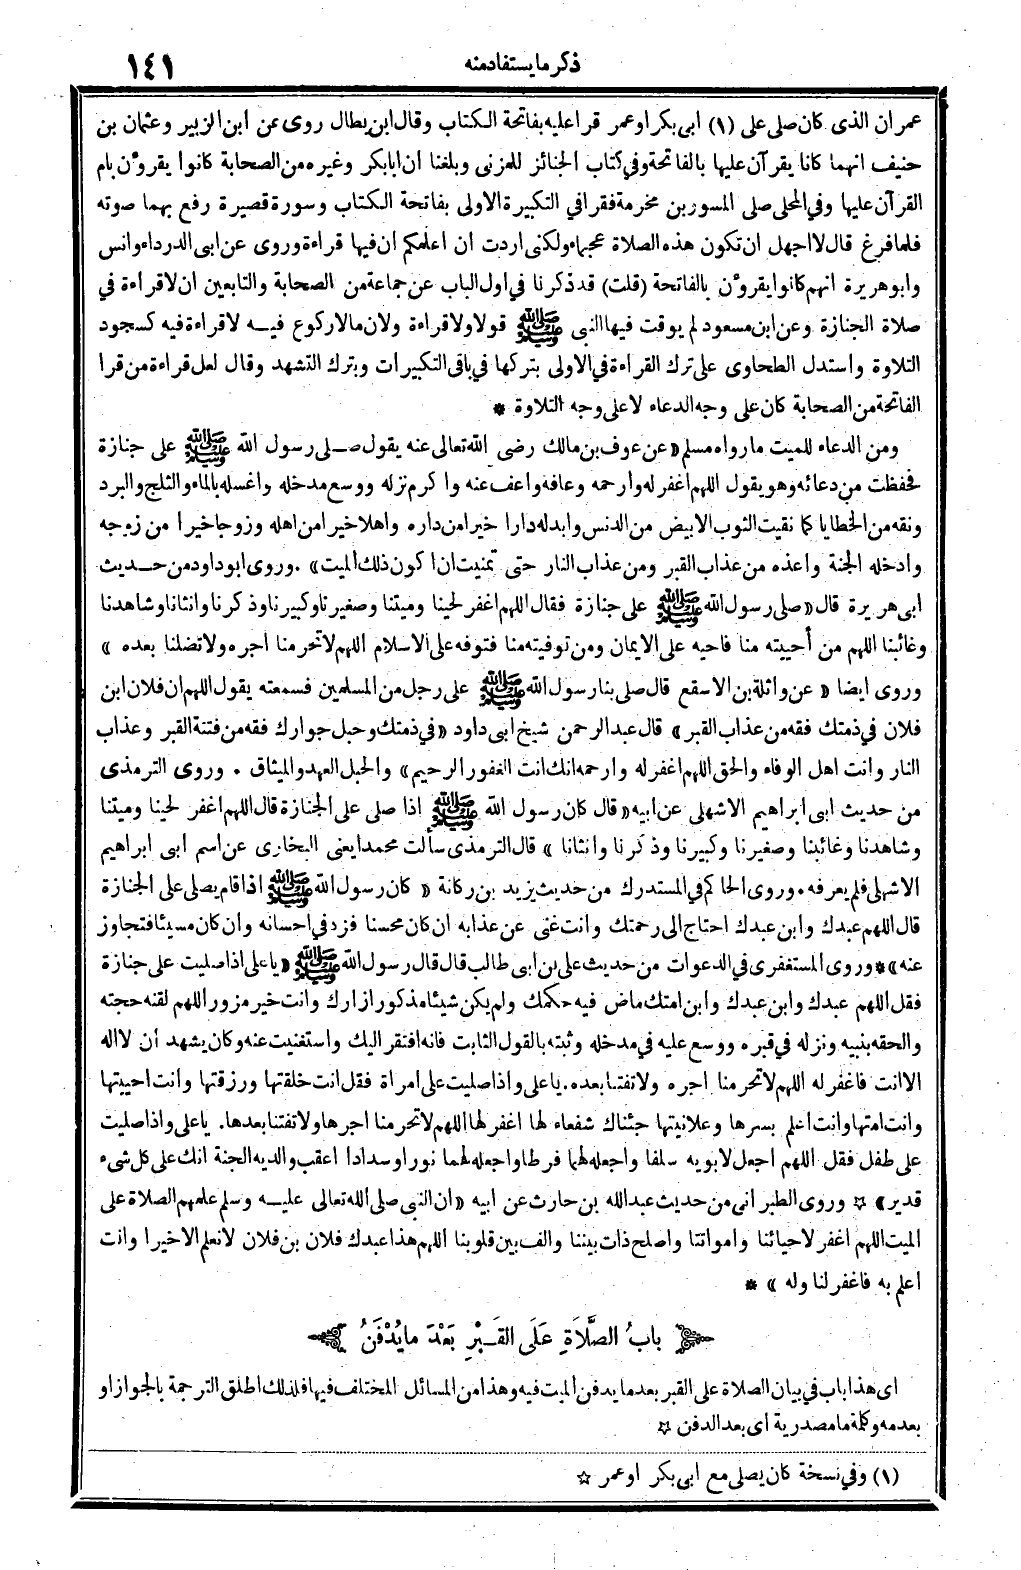 ذكر ما يستفاد منه
١٤١
عمران الذى كان صلى على (١) ابى بكر او عمر قرا عليه بفاتحة الكتاب وقال ابن بطال روى عن ابن الزبير وعثمان بن
حنيف انهما كانا يقرآن عليها بالفاتحة وفى كتاب الجنائز للمزنى وبلغنا ان ابابكر وغيره من الصحابة كانوا يقرؤن بام
القرآن عليها وفى المحلى صلى المسور بن مخرمة فقرا فى التكبيرة الاولى بفاتحة الكتاب وسورة قصيرة رفع بهما صوته
فلما فرغ قال لا اجهل ان تكون هذه الصلاة عجماء ولكنى اردت ان اعلمكم ان فيها قراءة وروى عن ابى الدرداء وانس
وابو هريرة انهم كانوا يقرؤن بالفاتحة (قلت) قد ذكرنا فى اول الباب عن جماعة من الصحابة والتابعين ان لا قراءة فى
صلاة الجنازة وعن ابن مسعود لم يوقت فيها النبى ﷺ قولا ولا قراءة ولان مالا ركوع فيه لا قراءة فيه كسجود
التلاوة واستدل الطحاوى على ترك القراءة فى الاولى بتركها فى باقى التكبيرات وبترك التشهد وقال لعل قراءة من قرا
الفاتحة من الصحابة كان على وجه الدعاء لا على وجه التلاوة *
ومن الدعاء للميت ما رواه مسلم «عن عوف بن مالك رضى الله تعالى عنه يقول صلى رسول الله ﷺ على جنازة
فحفظت من دعائه وهو يقول اللهم اغفر له وارحمه وعافه واعف عنه واكرم نزله ووسع مدخله واغسله بالماء والثلج والبرد
ونقه من الخطايا كما نقيت الثوب الابيض من الدنس وابدله دارا خيرا من داره واهلا خيرا من اهله وزوجا خيرا من زوجه
وادخله الجنة واعذه من عذاب القبر ومن عذاب النار حتى تمنيت ان اكون ذلك الميت» . وروى ابو داود من حديث
ابى هريرة قال «صلى رسول الله ﷺ على جنازة فقال اللهم اغفر لحينا وميتنا وصغيرنا وكبيرنا وذكرنا وانثانا وشاهدنا
وغائبنا اللهم من أحييته منا فاحيه على الايمان ومن توفيته منا فتوفه على الاسلام اللهم لا تحرمنا اجره ولا تضلنا بعده »
وروى ايضا « عن واثلة بن الاسقع قال صلى بنا رسول الله ﷺ على رجل من المسلمين فسمعته يقول اللهم ان فلان ابن
فلان فى ذمتك فقه من عذاب القبر» قال عبد الرحمن شيخ ابى داود «فى ذمتك وحبل جوارك فقه من فتنة القبر وعذاب
النار وانت اهل الوفاء والحق اللهم اغفر له وارحمه انك انت الغفور الرحيم» والحبل العهد والميثاق . وروى الترمذى
من حديث ابى ابراهيم الاشهلى عن ابيه «قال كان رسول الله ﷺ اذا صلى على الجنازة قال اللهم اغفر لحينا وميتنا
وشاهدنا وغائبنا وصغيرنا وكبيرنا وذكرنا وانثانا » قال الترمذى سألت محمدا يعنى البخارى عن اسم ابى ابراهيم
الاشهلى فلم يعرفه . وروى الحاكم فى المستدرك من حديث يزيد بن ركانة « كان رسول الله ﷺ اذا قام يصلى على الجنازة
قال اللهم عبدك وابن عبدك احتاج الى رحمتك وانت غنى عن عذابه ان كان محسنا فزد فى احسانه وان كان مسيئا فتجاوز
عنه» * وروى المستغفرى فى الدعوات من حديث على بن ابى طالب قال قال رسول الله ﷺ «يا على اذا صليت على جنازة
فقل اللهم عبدك وابن عبدك وابن امتك ماض فيه حكمك ولم يكن شيئا مذكورا زارك وانت خير مزور اللهم لقنه حجته
والحقه بنبيه ونزله فى قبره ووسع عليه فى مدخله وثبته بالقول الثابت فانه افتقر اليك واستغنيت عنه وكان يشهد أن لا اله
الا انت فاغفر له اللهم لا تحرمنا اجره ولا تفتنا بعده . يا على واذا صليت على امراة فقل انت خلقتها ورزقتها وانت احييتها
وانت امتها وانت اعلم بسرها وعلانيتها جئناك شفعاء لها اغفر لها اللهم لا تحرمنا اجرها ولا تفتنا بعدها . يا على واذا صليت
على طفل فقل اللهم اجعل لابويه سلفا واجعله لهما فرطا واجعله لهما نورا وسدادا اعقب والديه الجنة انك على كل شىء
قدير» ☆ وروى الطبرانى من حديث عبد الله بن حارث عن ابيه «ان النبى صلى الله تعالى عليه وسلم علمهم الصلاة على
الميت اللهم اغفر لاحيائنا وامواتنا واصلح ذات بيننا والف بين قلوبنا اللهم هذا عبدك فلان بن فلان لا نعلم الا خيرا وانت
اعلم به فاغفر لنا وله » *
بابُ الصَّلَاةِ عَلَى القَبْرِ بَعْدَ ما يُدْفَنُ
اى هذا باب فى بيان الصلاة على القبر بعد ما يدفن الميت فيه وهذا من المسائل المختلف فيها فلذلك اطلق الترجمة بالجواز او
بعدمه وكلمة ما مصدرية أى بعد الدفن ☆
(١) وفى نسخة كان يصلى مع ابى بكر او عمر ☆